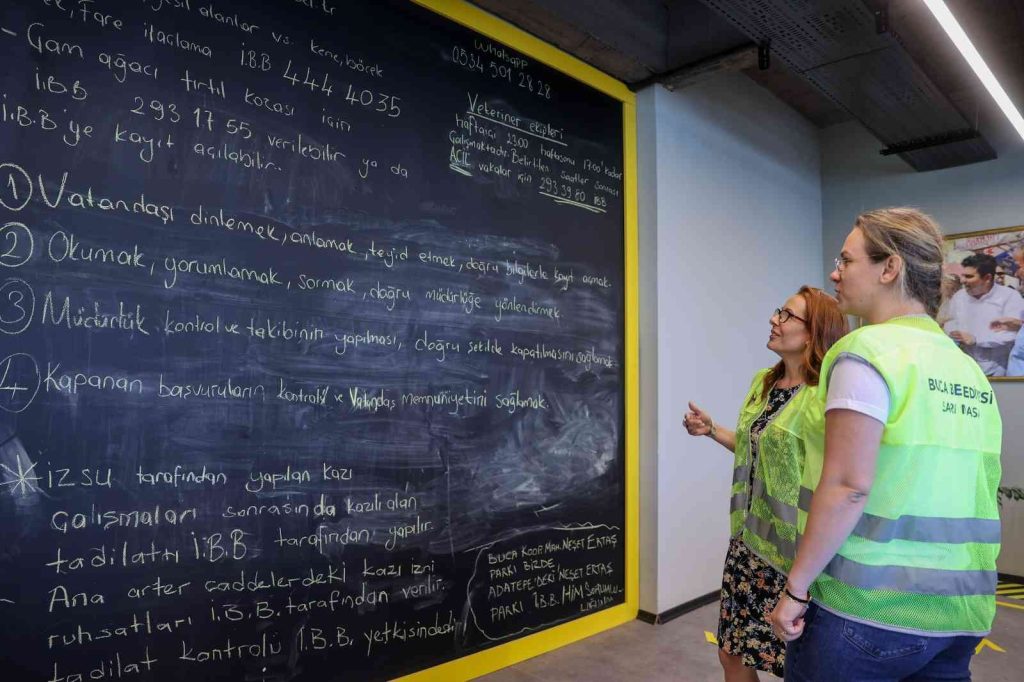 yeşil alanlar v.s. kene, böcek
Fare ilaçlama İ.B.B 444 40 35
- Çam ağacı tırtıl kozası için
İ.B.B 293 17 55 verilebilir ya da
İ.B.B'ye kayıt açılabilir.
Whatsapp
0534 501 28 28
Veteriner ekipleri
haftaiçi 23.00 haftasonu 17:00'kadar
Çalışmaktadır. Belirtilen saatler sonrası
ACİL vakalar için 293 39 80 İBB
① Vatandaşı dinlemek, anlamak, teyid etmek, doğru bilgilerle kayıt açmak.
② Okumak, yorumlamak, sormak, doğru müdürlüğe yönlendirmek.
③ Müdürlük kontrol ve takibinin yapılması, doğru şekilde kapatılmasını sağlamak.
④ Kapanan başvuruların kontrolü ve Vatandaş Memnuniyetini sağlamak.
* İZSU tarafından yapılan kazı
Çalışmaları sonrasında kazılı alan
tadilatı İ.B.B tarafından yapılır.
Ana arter caddelerdeki kazı izni
ruhsatları İ.B.B. tarafından verilir.
tadilat kontrolü İ.B.B. yetkisindedir.
BUCA KOOP. MAH. NEŞET ERTAŞ
PARKI BİZDE
ADATEPE'DEKİ NEŞET ERTAŞ
PARKI İ.B.B. HİM SORUMLU-
BUCA BELEDİYESİ
SARI MASA